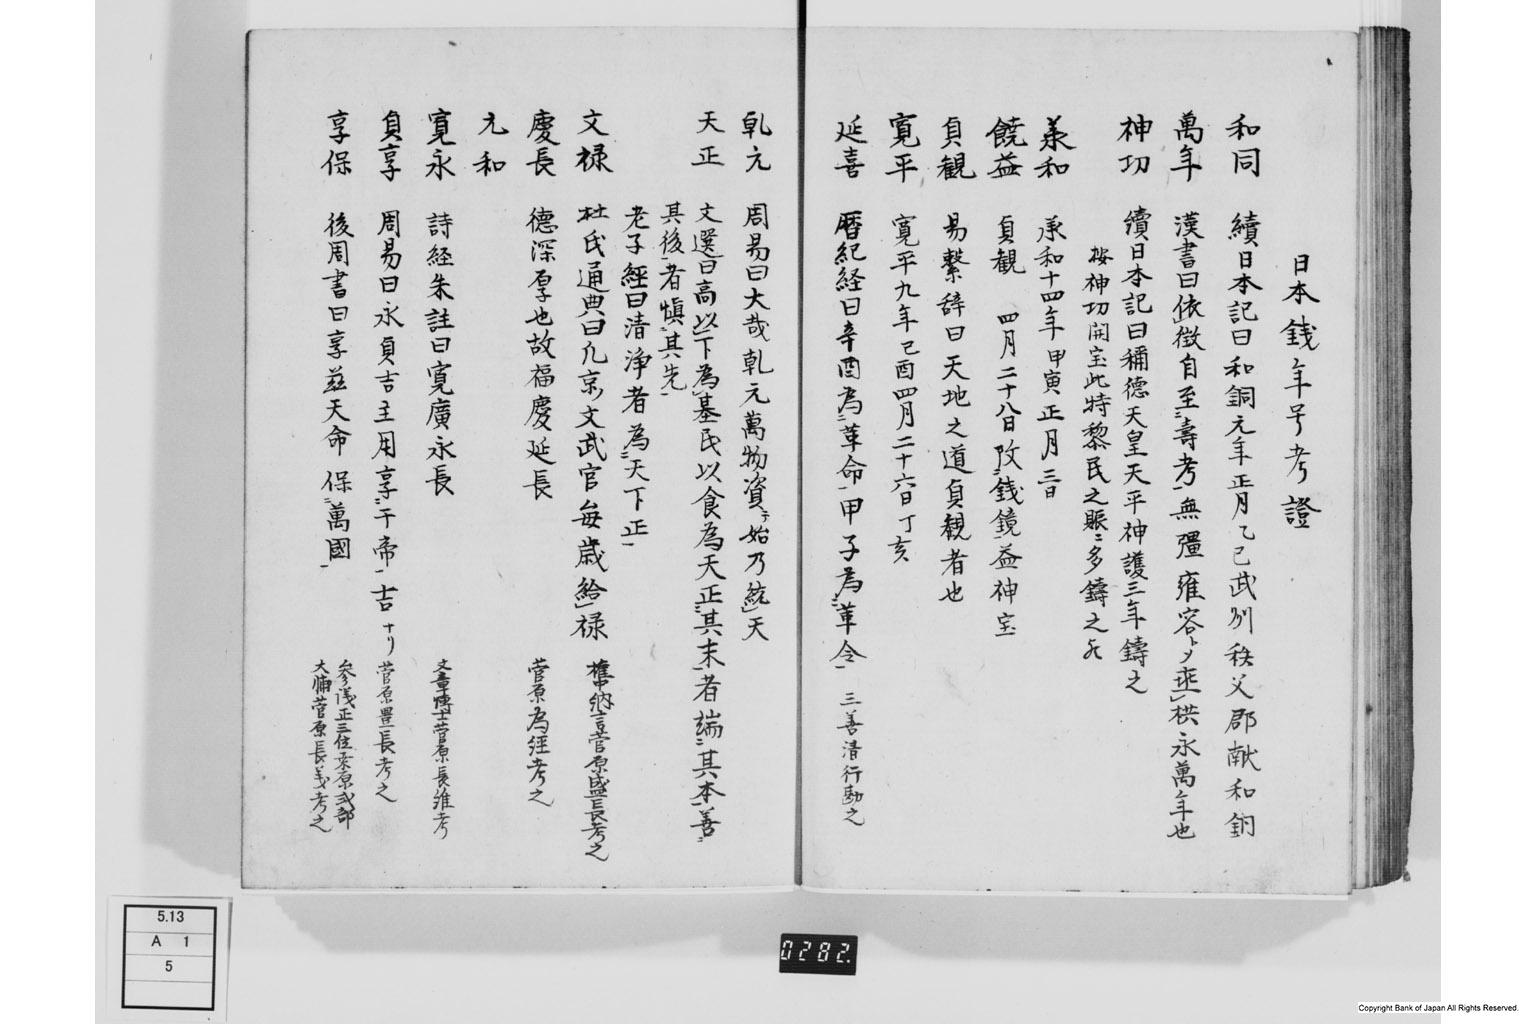 日本銭年号考證
和同 續日本記曰和銅元年正月乙巳武刕秩父郡献和銅
萬年 漢書曰依徴自至壽考無彊雍容トメ垂拱永萬年也
神功 續日本記曰稱德天皇天平神護三年鑄之
按神功開宝此特黎民之賑ニ多鑄之
承和 承和十四年甲寅正月三日
饒益 貞観 四月二十八日改銭鏡益神宝
貞観 易繋辞曰天地之道貞観者也
寛平 寛平九年己酉四月二十六日丁亥
延喜 暦紀経曰辛酉為革命甲子為革令 三善清行勘之
乹元 周易曰大哉乹元萬物資テ始乃統天
天正 文選曰高以下為基民以食為天正其末者端其本善
其後者愼其先
老子經曰清淨者為天下正
文禄 杜氏通典曰凡京文武官毎歳給禄 権中納言菅原盛長考之
慶長 德深厚也故福慶延長 菅原為経考之
元和
寛永 詩経朱註曰寛廣永長 文章博士菅原長維考
貞享 周易曰永貞吉主用享于帝吉ナリ 菅原豊長考之
享保 後周書曰享茲天命 保萬國 参议正三位菅原式部
大輔菅原長義考之
5.13
A 1
5
0282.
Copyright Bank of Japan All Rights Reserved.